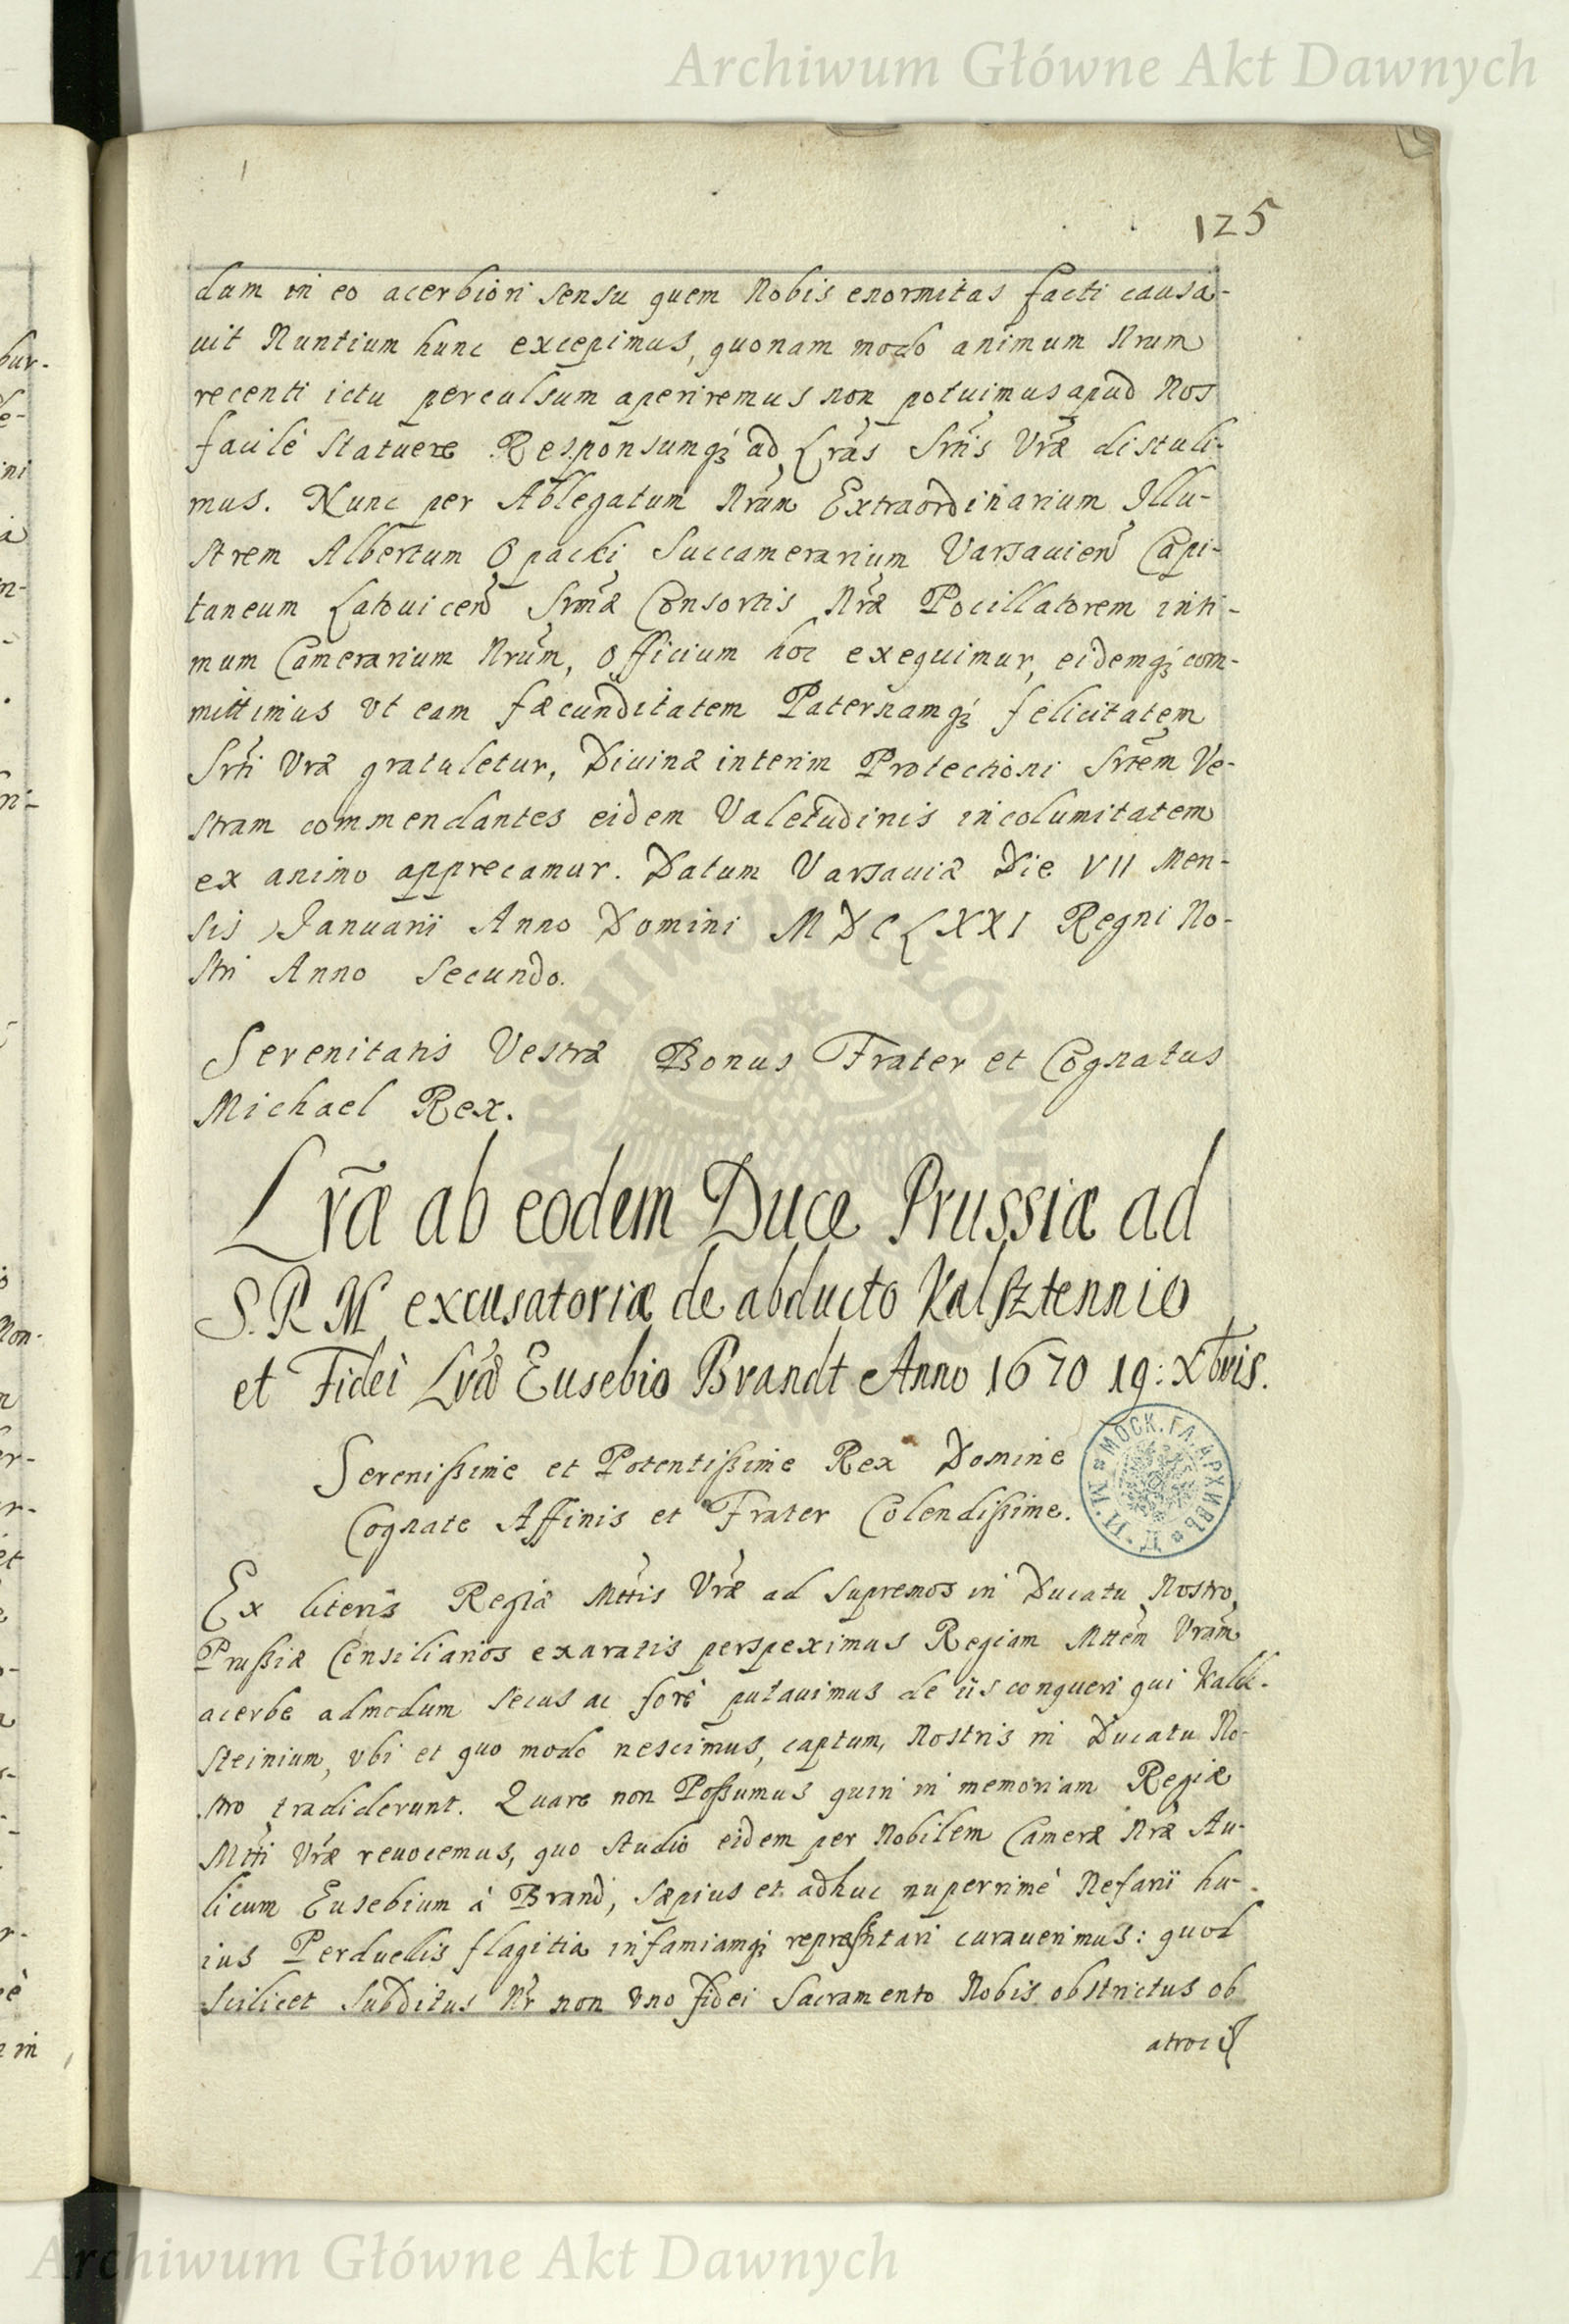 Archiwum Główne Akt Dawnych
125
dum in eo acerbiori sensu quem Nobis enormitas facti causa-
uit Nuntium hunc excepimus, quonam modo animum Nrum
recenti ictu perculsum aperiremus non potuimus apud Nos
facilè statuere Responsumq₃ ad Lrãs Srñis Vrã̃e distuli-
mus. Nunc per Ablegatum Nrũm Extraordinarium Illu-
strem Albertum Opacki Succamerarium Varsauien̄ Capi-
taneum Latouicen̄ Srmæ Consortis Nrã̃e Pocillatorem inti-
mum Camerarium Nrũm, Officium hoc exequimur, eidemq₃ com-
mittimus vt eam fæcunditatem Paternamq₃ felicitatem
Srti Vræ gratuletur, Diuinæ interim Protectioni Srtem Ve-
stram commendantes eidem Valetudinis incolumitatem
ex animo apprecamur. Datum Varsauiæ Die VII Men-
sis Januarii Anno Domini MDCLXXI Regni No-
stri Anno Secundo.
Serenitatis Vestræ Bonus Frater et Cognatus
Michael Rex.
Lrã̃e ab eodem Duce Prussiæ ad
S. R M excusatoriæ de abducto Kalsztennio
et Fidei Eusebio Brandt Anno 1670 19: Xbris.
Serenißime et Potentißime Rex Domine
Cognate Affinis et Frater Colendißime.
МОСК. ГЛ. АРХИВЪ М. И. Д.
Ex literis Regiæ Mttis Vræ ad supremos in Ducatu Nostro
Prußiæ Consiliarios exaratis perspeximus Regiam Mttem Vram
acerbe admodum secus ac forè putauimus de iis conqueri qui Kalck-
steinium, vbi et quo modo nescimus, captum, Nostris in Ducatu No-
stro tradiderunt. Quare non Poßumus quin in memoriam Regiæ
Mtti Vræ reuocemus, quo studio eidem per Nobilem Cameræ Nræ Au-
licum Eusebium à Brand, sæpius et adhuc nuperrimè Nefarii hu-
ius Perduellis flagitia infamiamq₃ repræsentari curauerimus: quod
scilicet Subditus Nr non vno fidei Sacramento Nobis obstrictus ob
atroci
Archiwum Główne Akt Dawnych